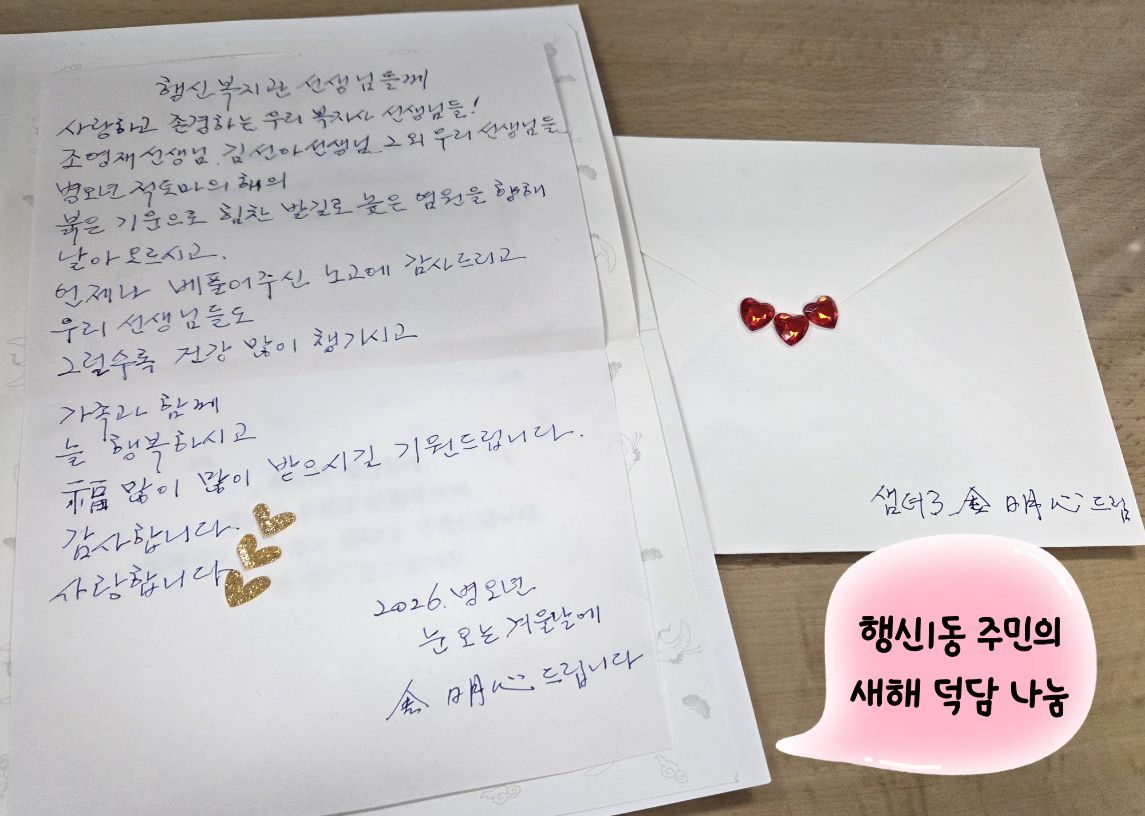 행신복지관 선생님들께
사랑하고 존경하는 우리 복지사 선생님들!
조영재선생님. 김선아선생님. 그외 우리선생님들.
병오년 적토마의 해의
붉은 기운으로 힘찬 발길로 높은 염원을 향해
날아오르시고.
언제나 베풀어주신 노고에 감사드리고
우리 선생님들도
그럴수록 건강 많이 챙기시고
가족과 함께
늘 행복하시고
福 많이 많이 받으시길 기원드립니다.
감사합니다.
사랑합니다
2026. 병오년
눈 오는 겨울날에
金 明心 드립니다
샘터3 金 明心 드림
행신1동 주민의
새해 덕담 나눔